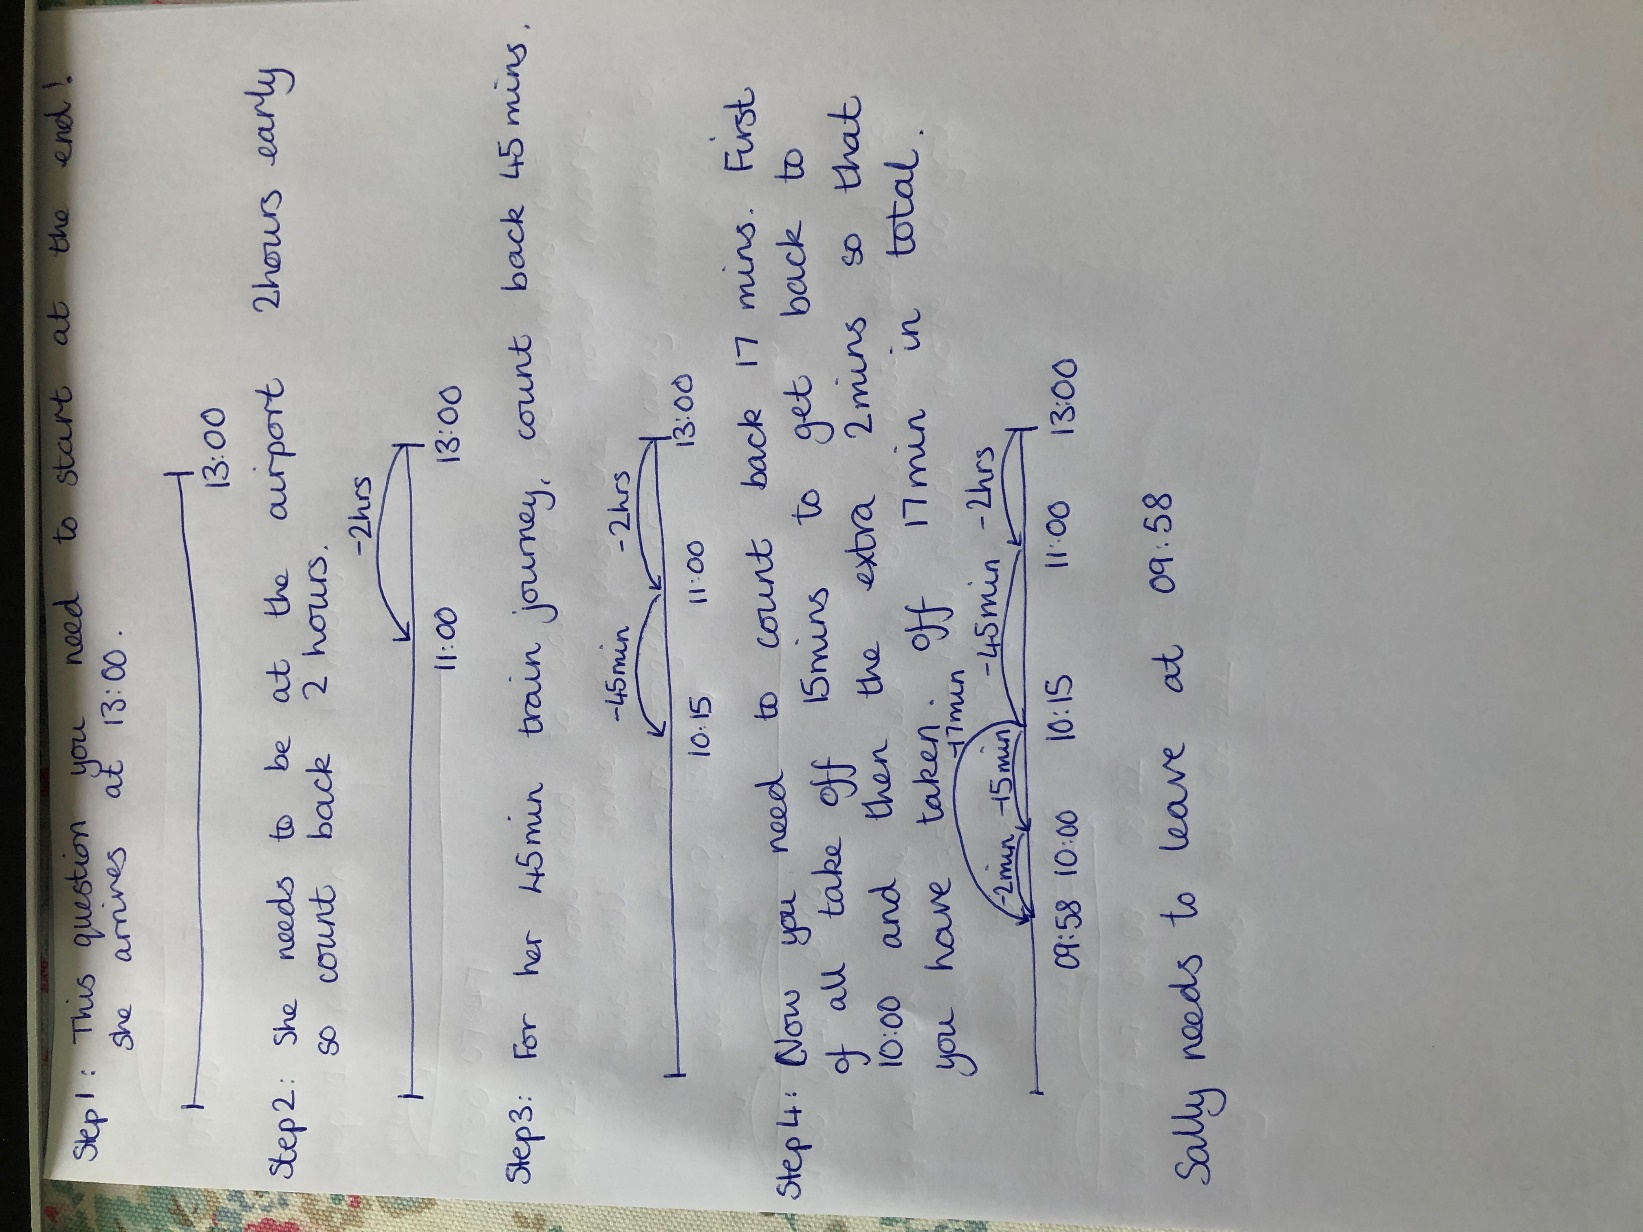 Step 1: This question you need to start at the end!
She arrives at 13:00.
13:00
Step 2: She needs to be at the airport 2hours early
so count back 2 hours.
-2hrs
11:00 13:00
Step 3: For her 45min train journey, count back 45 mins.
-45min -2hrs
10:15 11:00 13:00
Step 4: Now you need to count back 17 mins. First
of all take off 15mins to get back to
10:00 and then the extra 2mins so that
you have taken off 17min in total.
-17min
-2min -15min -45min -2hrs
09:58 10:00 10:15 11:00 13:00
Sally needs to leave at 09:58